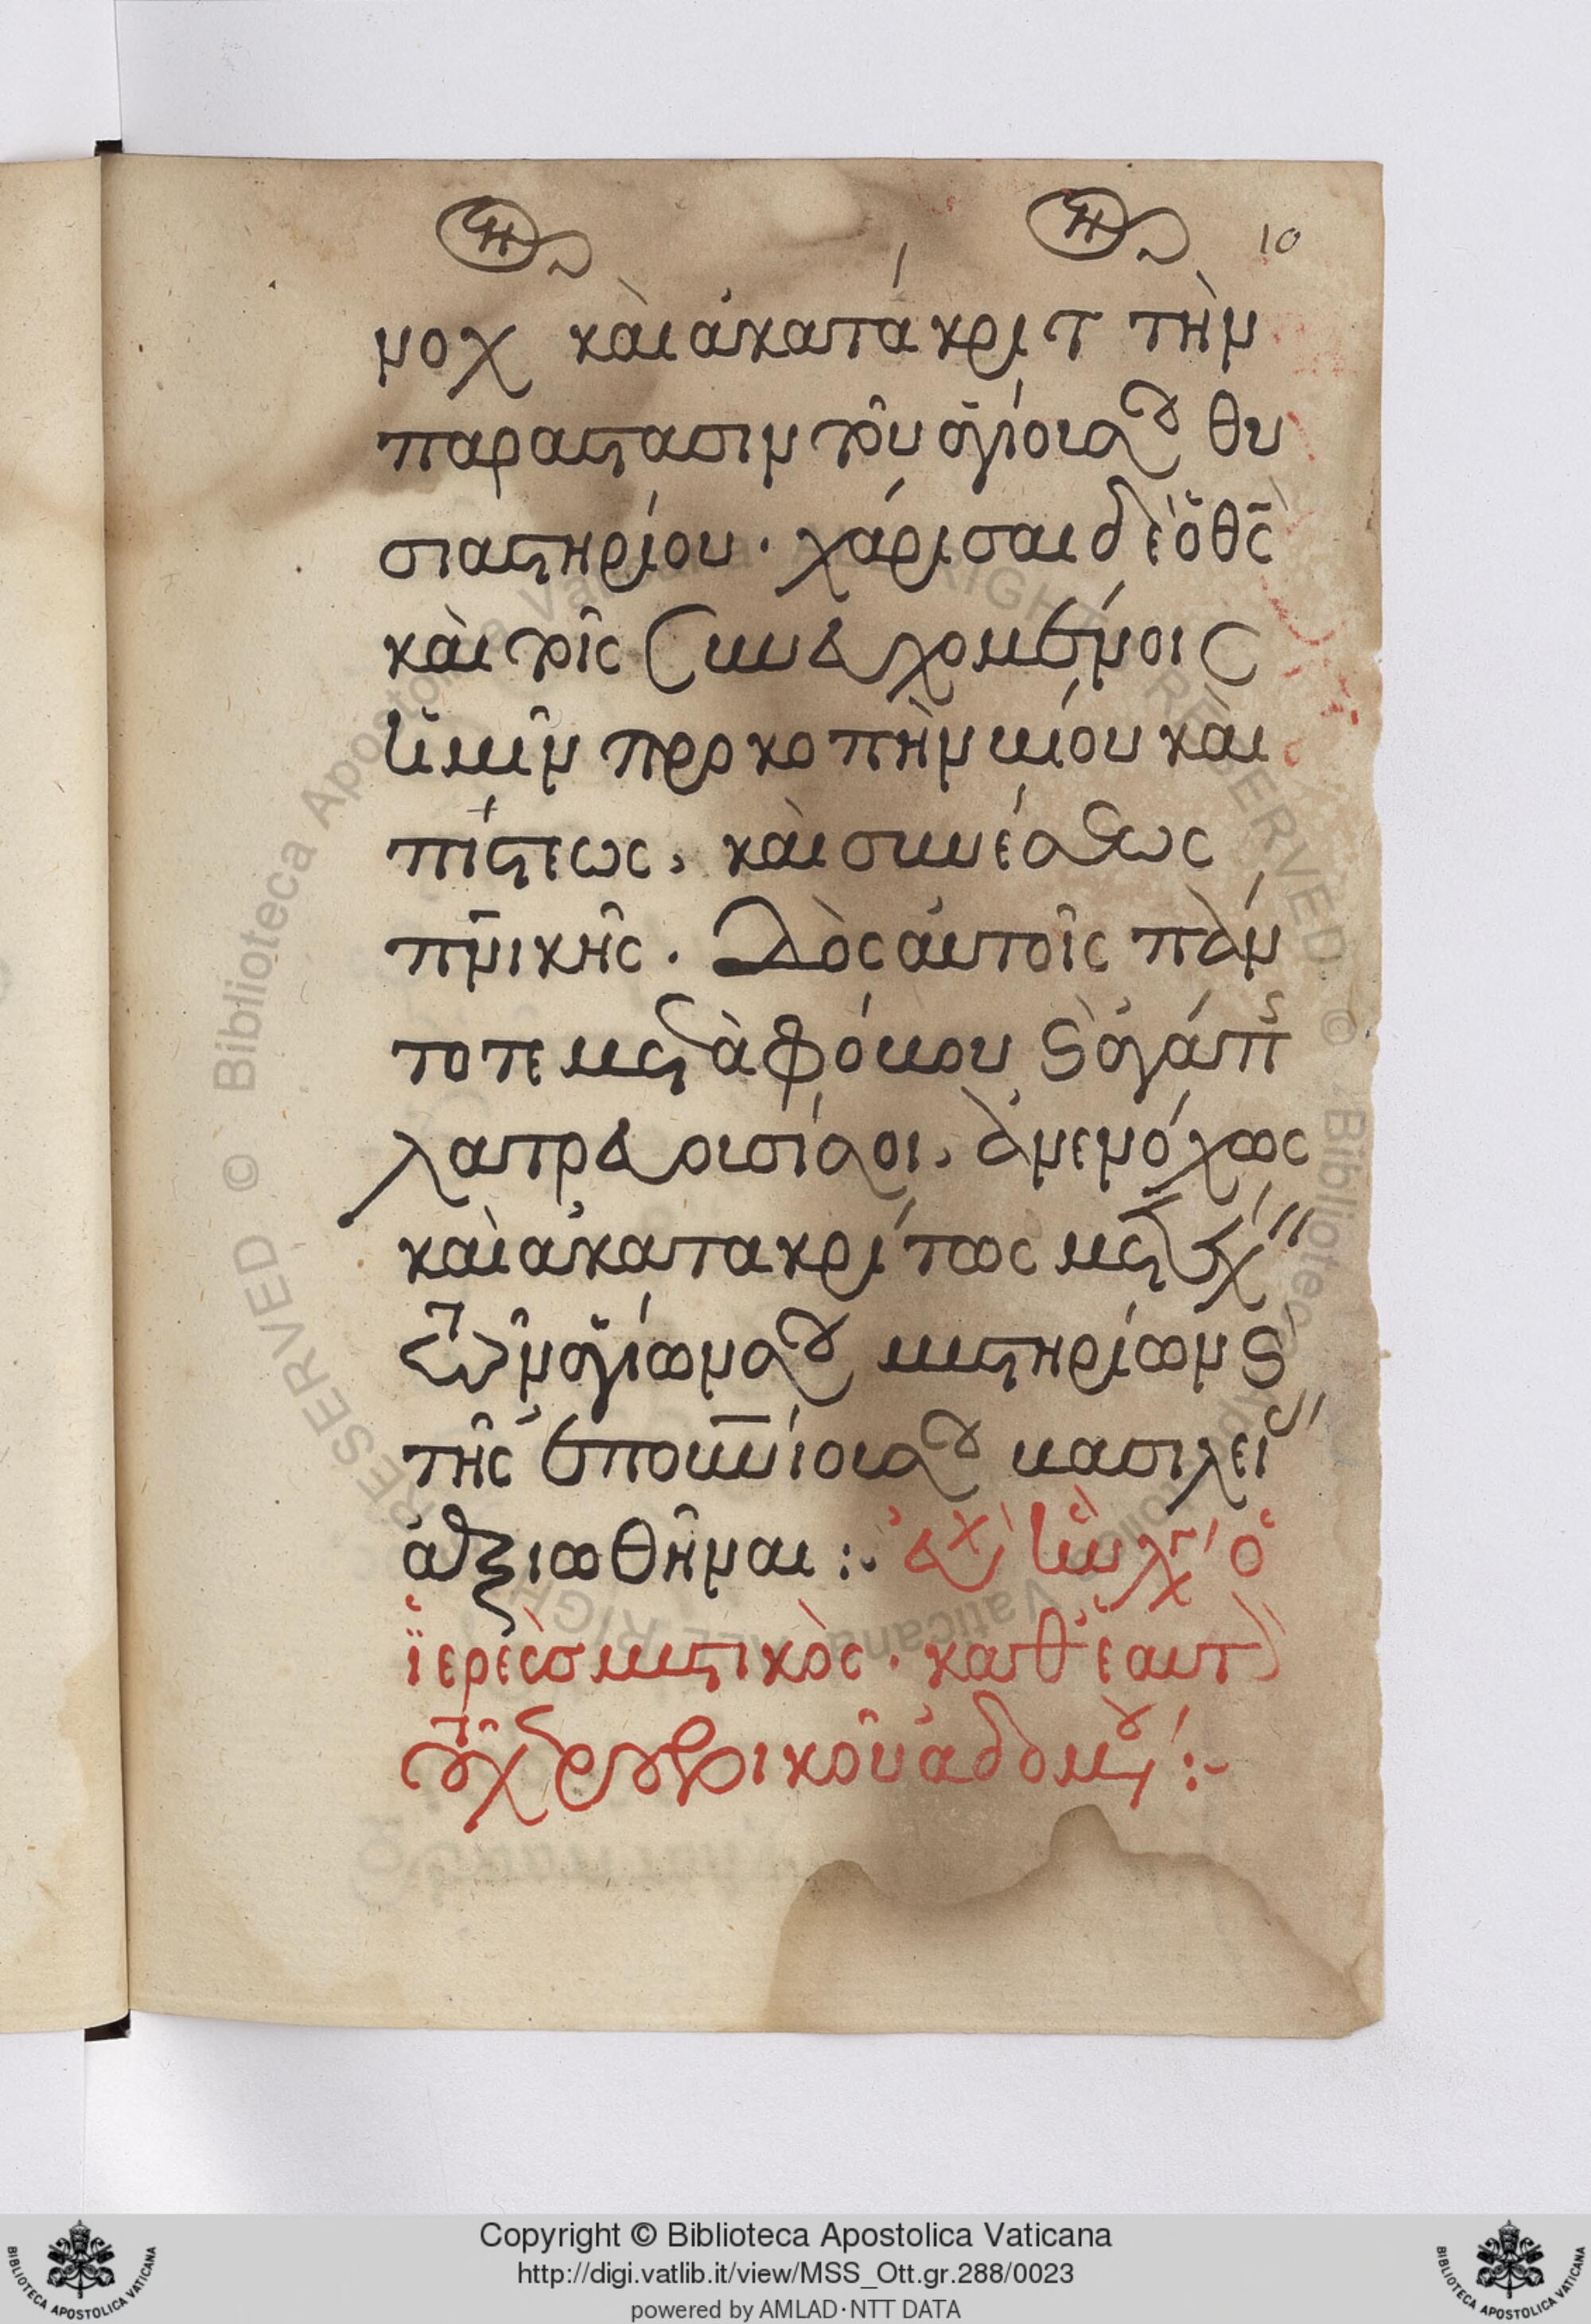 η η 10
νοχ καὶ ἀκατάκριτ τὴν
παράστασιν τοῦ ἁγίου σου θυ
σιαστηρίου· χάρισαι δὲ ὁ θς
καὶ τοῖς συνευχομένοις
ἡμῖν προκοπὴν βίου καὶ
πίστεως, καὶ συνέσεως
πνικῆς· Δὸς αὐτοῖς πάν
τοτε μετὰ φόβου καὶ ἀγάπ
λατρεύουσί σοι, ἀνενόχως
καὶ ἀκατακρίτως μετέχ
τῶν ἁγίων σου μυστηρίων καὶ
τῆς ἐπουνίου σου βασιλεί
ἀξιωθῆναι :· εὐχ ἣν λέγ ὁ
ἱερεὺς μυστικὸς· καθ' ἑαυτ
τοῦ χερουβικοῦ ἀδομέν :·
Copyright © Biblioteca Apostolica Vaticana
http://digi.vatlib.it/view/MSS_Ott.gr.288/0023
powered by AMLAD·NTT DATA